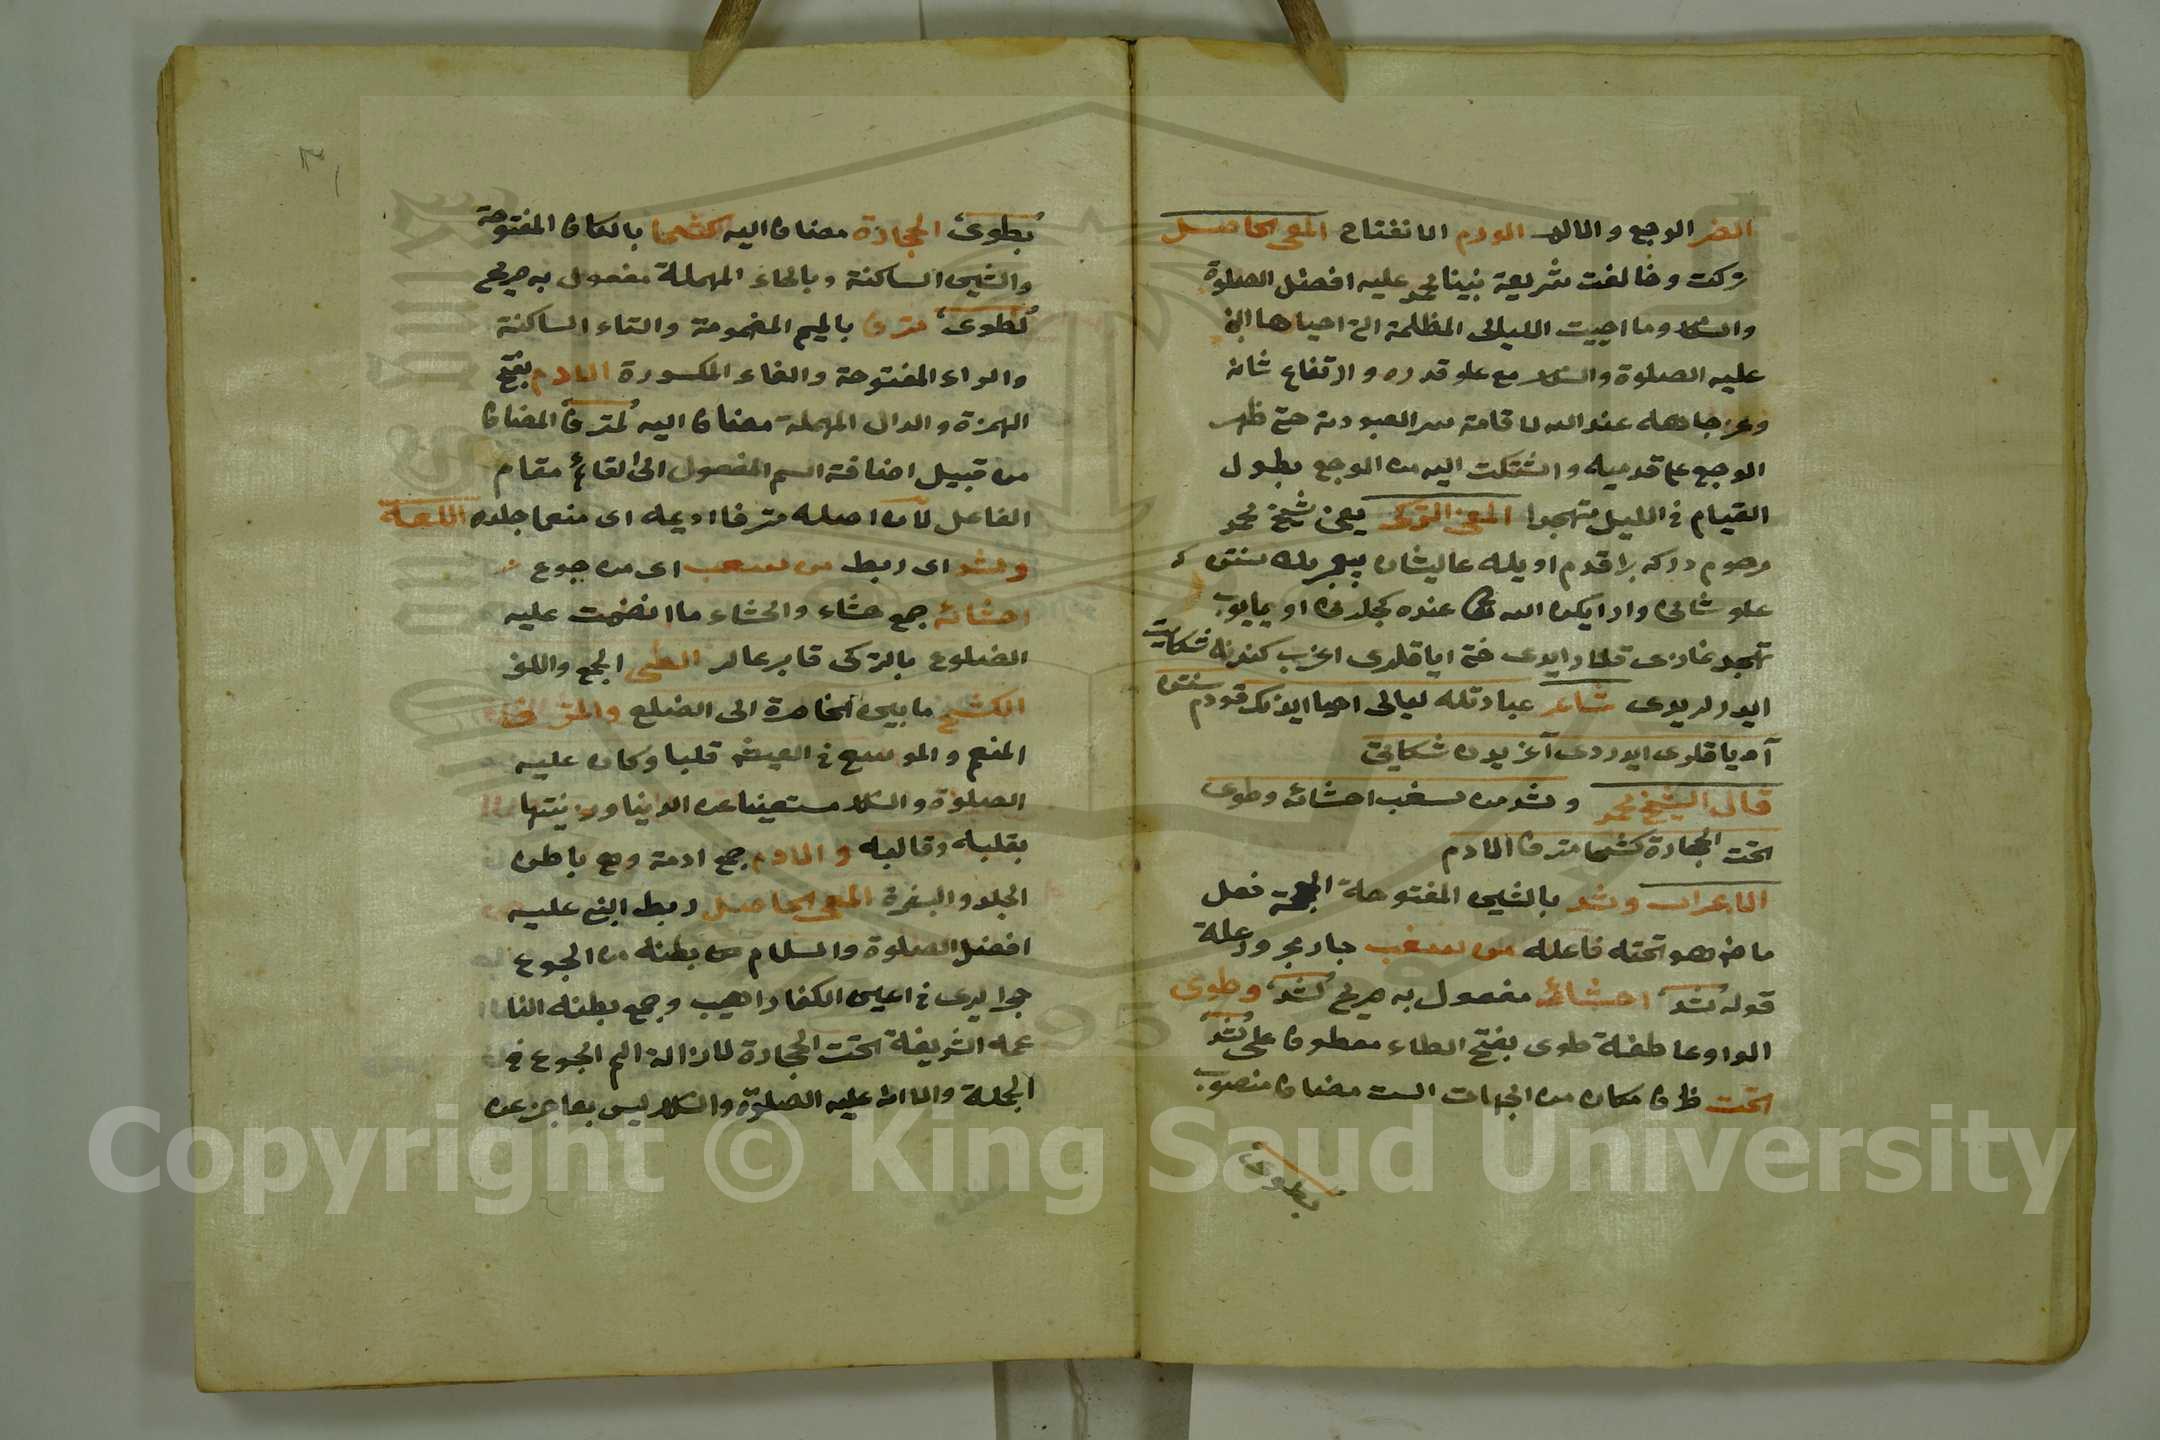 الضر الوجع والالم الورم الانتفاخ المعنى الحاصل
تركت وخالفت شريعة نبينا محمد عليه افضل الصلوة
والسلام وما احييت الليالى المظلمة التى احياها النبى
عليه الصلوة والسلام مع علو قدره وارتفاع شانه
وعز جاهه عند الله لاقامة سر العبودية حتى ظهر
الوجع على قدميه واشتكت اليه من الوجع بطول
القيام فى الليل متهجدا المعنى التركى يعنى شيخ محمد
مرحوم ديركه اويله عاليشان پيغمبرك سنتن كه
علو شانى وار ايكن الله عنده كيجه لرده اويمايوب
تهجد نمازى قيلار ايدى حتى اياقلرى اغريب كندونه شكايت
ايدرلر ايدى شاعر عبادتله ليالى احيا ايدنك قودم سنتن
آه اياقلرى ايدردى آغريدن شكايتى
قال الشيخ محمد وشد من سغب احشائه وطوى
تحت الحجارة كشحا مترف الادم
الاعراب وشد بالشين المفتوحة المعجمة فعل
ماض وهو تحته فاعله من سغب جار مجرور علة
قوله شد احشائه مفعول به صريح لشد وطوى
الواو عاطفة طوى بفتح الطاء معطوف على شد
تحت ظرف مكان من الجهات الست مضاف منصوب
بطوى
بطوى الحجارة مضاف اليه كشحا بالكاف المفتوحة
والشين الساكنة وبالحاء المهملة مفعول به صريح
لطوى مترف بالميم المضمومة والتاء الساكنة
والراء المفتوحة والفاء المكسورة الادم بفتح
الهمزة والدال المهملة مضاف اليه لمترف المضاف
من قبيل اضافة اسم المفعول الى القائم مقام
الفاعل لان اصله مترفا اديمه اى منعما جلده اللغة
وشد اى ربط من سغب اى من جوع
احشائه جمع حشاء والحشاء ما انضمت عليه
الضلوع بالتركى قابرغالر الطى الجمع واللف
الكشح ما بين الخاصرة الى الضلع والمترف
المنعم والموسع فى العيش قلبا وكان عليه
الصلوة والسلام مستغنيا عن الدنيا وزينتها
بقلبه وقالبه والادم جمع ادمة وهى باطن
الجلد والبشرة المعنى الحاصل ربط النبى عليه
افضل الصلوة والسلام بطنه من الجوع
حتى يرى فى اعين الكفار اهيب وجمع بطنه
الشريفة تحت الحجارة لازالة الم الجوع فى
الجملة والا انه عليه الصلوة والسلام ليس بعاجز عن
Copyright © King Saud University